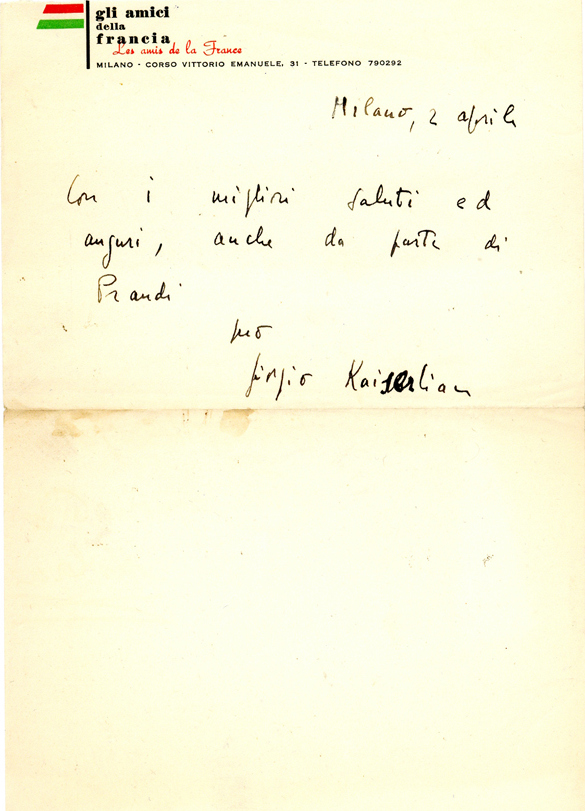 gli amici
della
francia
Les amis de la France
MILANO - CORSO VITTORIO EMANUELE, 31 - TELEFONO 790292
Milano, 2 aprile
Con i migliori saluti ed
auguri, anche da parte di
Prandi
suo
Giorgio Kaisserlian